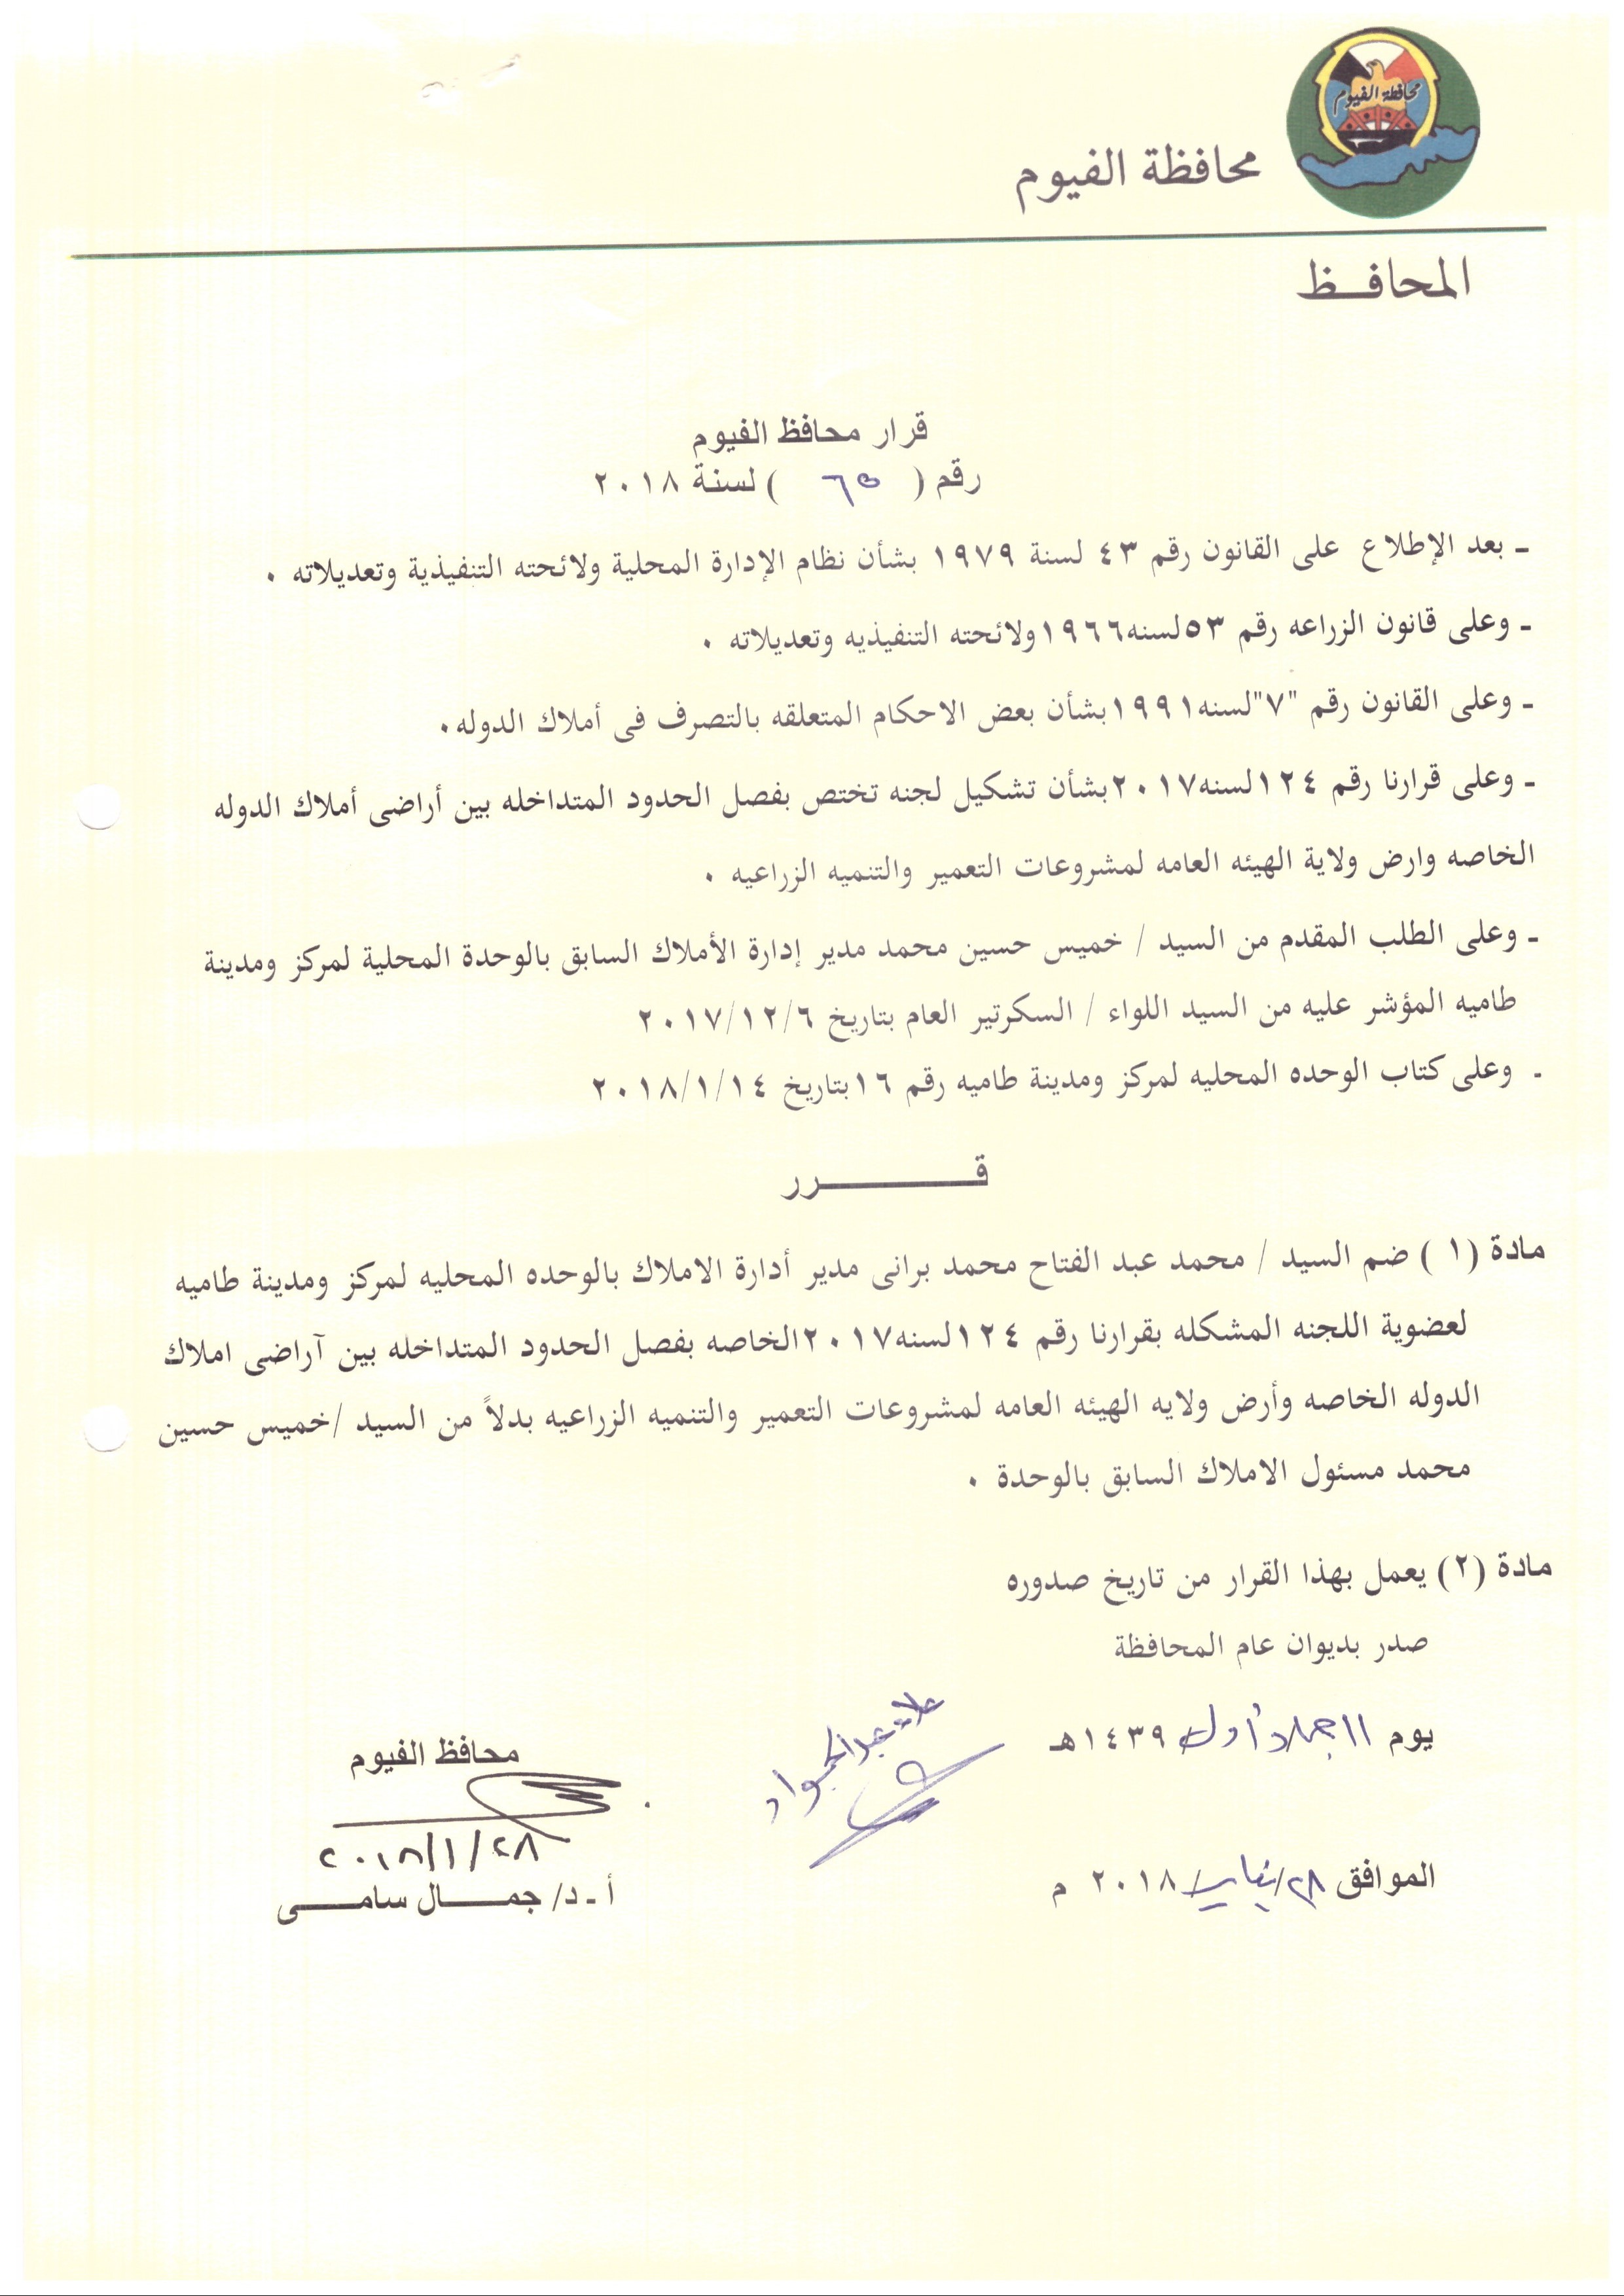 محافظة الفيوم
محافظة الفيوم
المحافـظ
قرار محافظ الفيوم
رقم ( ٦٥ ) لسنة ٢٠١٨
ـ بعد الإطلاع على القانون رقم ٤٣ لسنة ١٩٧٩ بشأن نظام الإدارة المحلية ولائحته التنفيذية وتعديلاته ٠
ـ وعلى قانون الزراعه رقم ٥٣لسنه١٩٦٦ولائحته التنفيذيه وتعديلاته ٠
ـ وعلى القانون رقم "٧"لسنه١٩٩١بشأن بعض الاحكام المتعلقه بالتصرف فى أملاك الدوله٠
ـ وعلى قرارنا رقم ١٢٤لسنه٢٠١٧بشأن تشكيل لجنه تختص بفصل الحدود المتداخله بين أراضى أملاك الدوله
الخاصه وارض ولاية الهيئه العامه لمشروعات التعمير والتنميه الزراعيه ٠
ـ وعلى الطلب المقدم من السيد / خميس حسين محمد مدير إدارة الأملاك السابق بالوحدة المحلية لمركز ومدينة
طاميه المؤشر عليه من السيد اللواء / السكرتير العام بتاريخ ٢٠١٧/١٢/٦
- وعلى كتاب الوحده المحليه لمركز ومدينة طاميه رقم ١٦بتاريخ ٢٠١٨/١/١٤
قـــــــرر
مادة (١ ) ضم السيد / محمد عبد الفتاح محمد برانى مدير أدارة الاملاك بالوحده المحليه لمركز ومدينة طاميه
لعضوية اللجنه المشكله بقرارنا رقم ١٢٤لسنه٢٠١٧الخاصه بفصل الحدود المتداخله بين آراضى املاك
الدوله الخاصه وأرض ولايه الهيئه العامه لمشروعات التعمير والتنميه الزراعيه بدلاً من السيد /خميس حسين
محمد مسئول الاملاك السابق بالوحدة ٠
مادة (٢) يعمل بهذا القرار من تاريخ صدوره
صدر بديوان عام المحافظة
يوم ١١ جماد أول ١٤٣٩هـ
علاء عبد الجواد
محافظ الفيوم
٢٠١٨/١/٢٨
الموافق ٢٨/يناير/٢٠١٨ م
أ ـ د/ جمـــال سامـــى